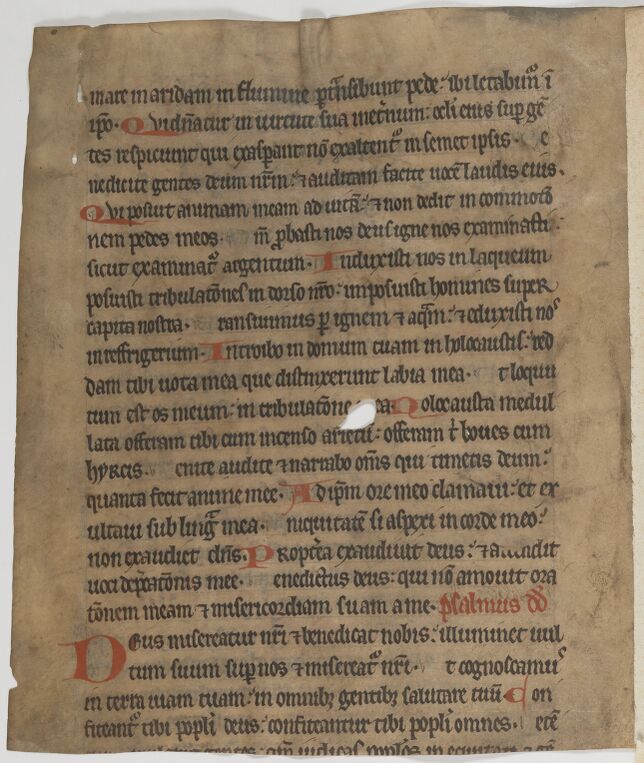 mare in aridam in flumine ꝑtͣnsibunt pede· ibi letabimͬ ī
ip̄o· Qvi dn̄atur in uirtute sua inet̄num: oc̄li eius suꝑ gē
tes respiciunt qui exasꝑant nō exaltentͬ in semet ipsis· e
nedicite gentes deum nr̄m: ⁊ auditam facite uocē laudis eius·
Qvi posuit animam meam ad uitā: ⁊ non dedit in commotō
nem pedes meos· m̄ ꝓbasti nos deus igne nos examinasti
sicut examinatͬ argentum· Induxisti nos in laqueum
posuisti tribulatōnes in dorso nr̄o: imposuisti homines super
capita nostra· ransiuimus ꝑ ignem ⁊ aqͣm: ⁊ eduxisti noˢ
in reffrigerium· Introibo in domum tuam in holocaustis: red
dam tibi uota mea que distinxerunt labia mea· t locutu
tum est os meum: in tribulatōne mea· Holocausta medul
lata offeram tibi cum incenso arietū: offeram t̄ boues cum
hyrcis· enite audite ⁊ narrabo om̄s qui timetis deum:
quanta fecit anime mee· Ad ip̄m ore meo clamaui: et ex
ultaui sub lingͣ mea· niquitatē si aspexi in corde meo:
non exaudiet dn̄s· Propt̄ea exaudiuit deus: ⁊ attendit
uoci dep̄catōnis mee· enedictus deus: qui nō amouit ora
tōnem meam ⁊ misericordiam suam a me· psalmus dd
Deus misereatur nr̄i ⁊ benedicat nobis: illuminet uul
tum suum suꝑ nos ⁊ misereatͬ nr̄i· t cognoscamuˢ
in terra uiam tuam: in omnibꝫ gentibꝫ salutare tuū Con
fiteantͬ tibi popl̄i deus: confiteantur tibi popl̄i omnes· etē